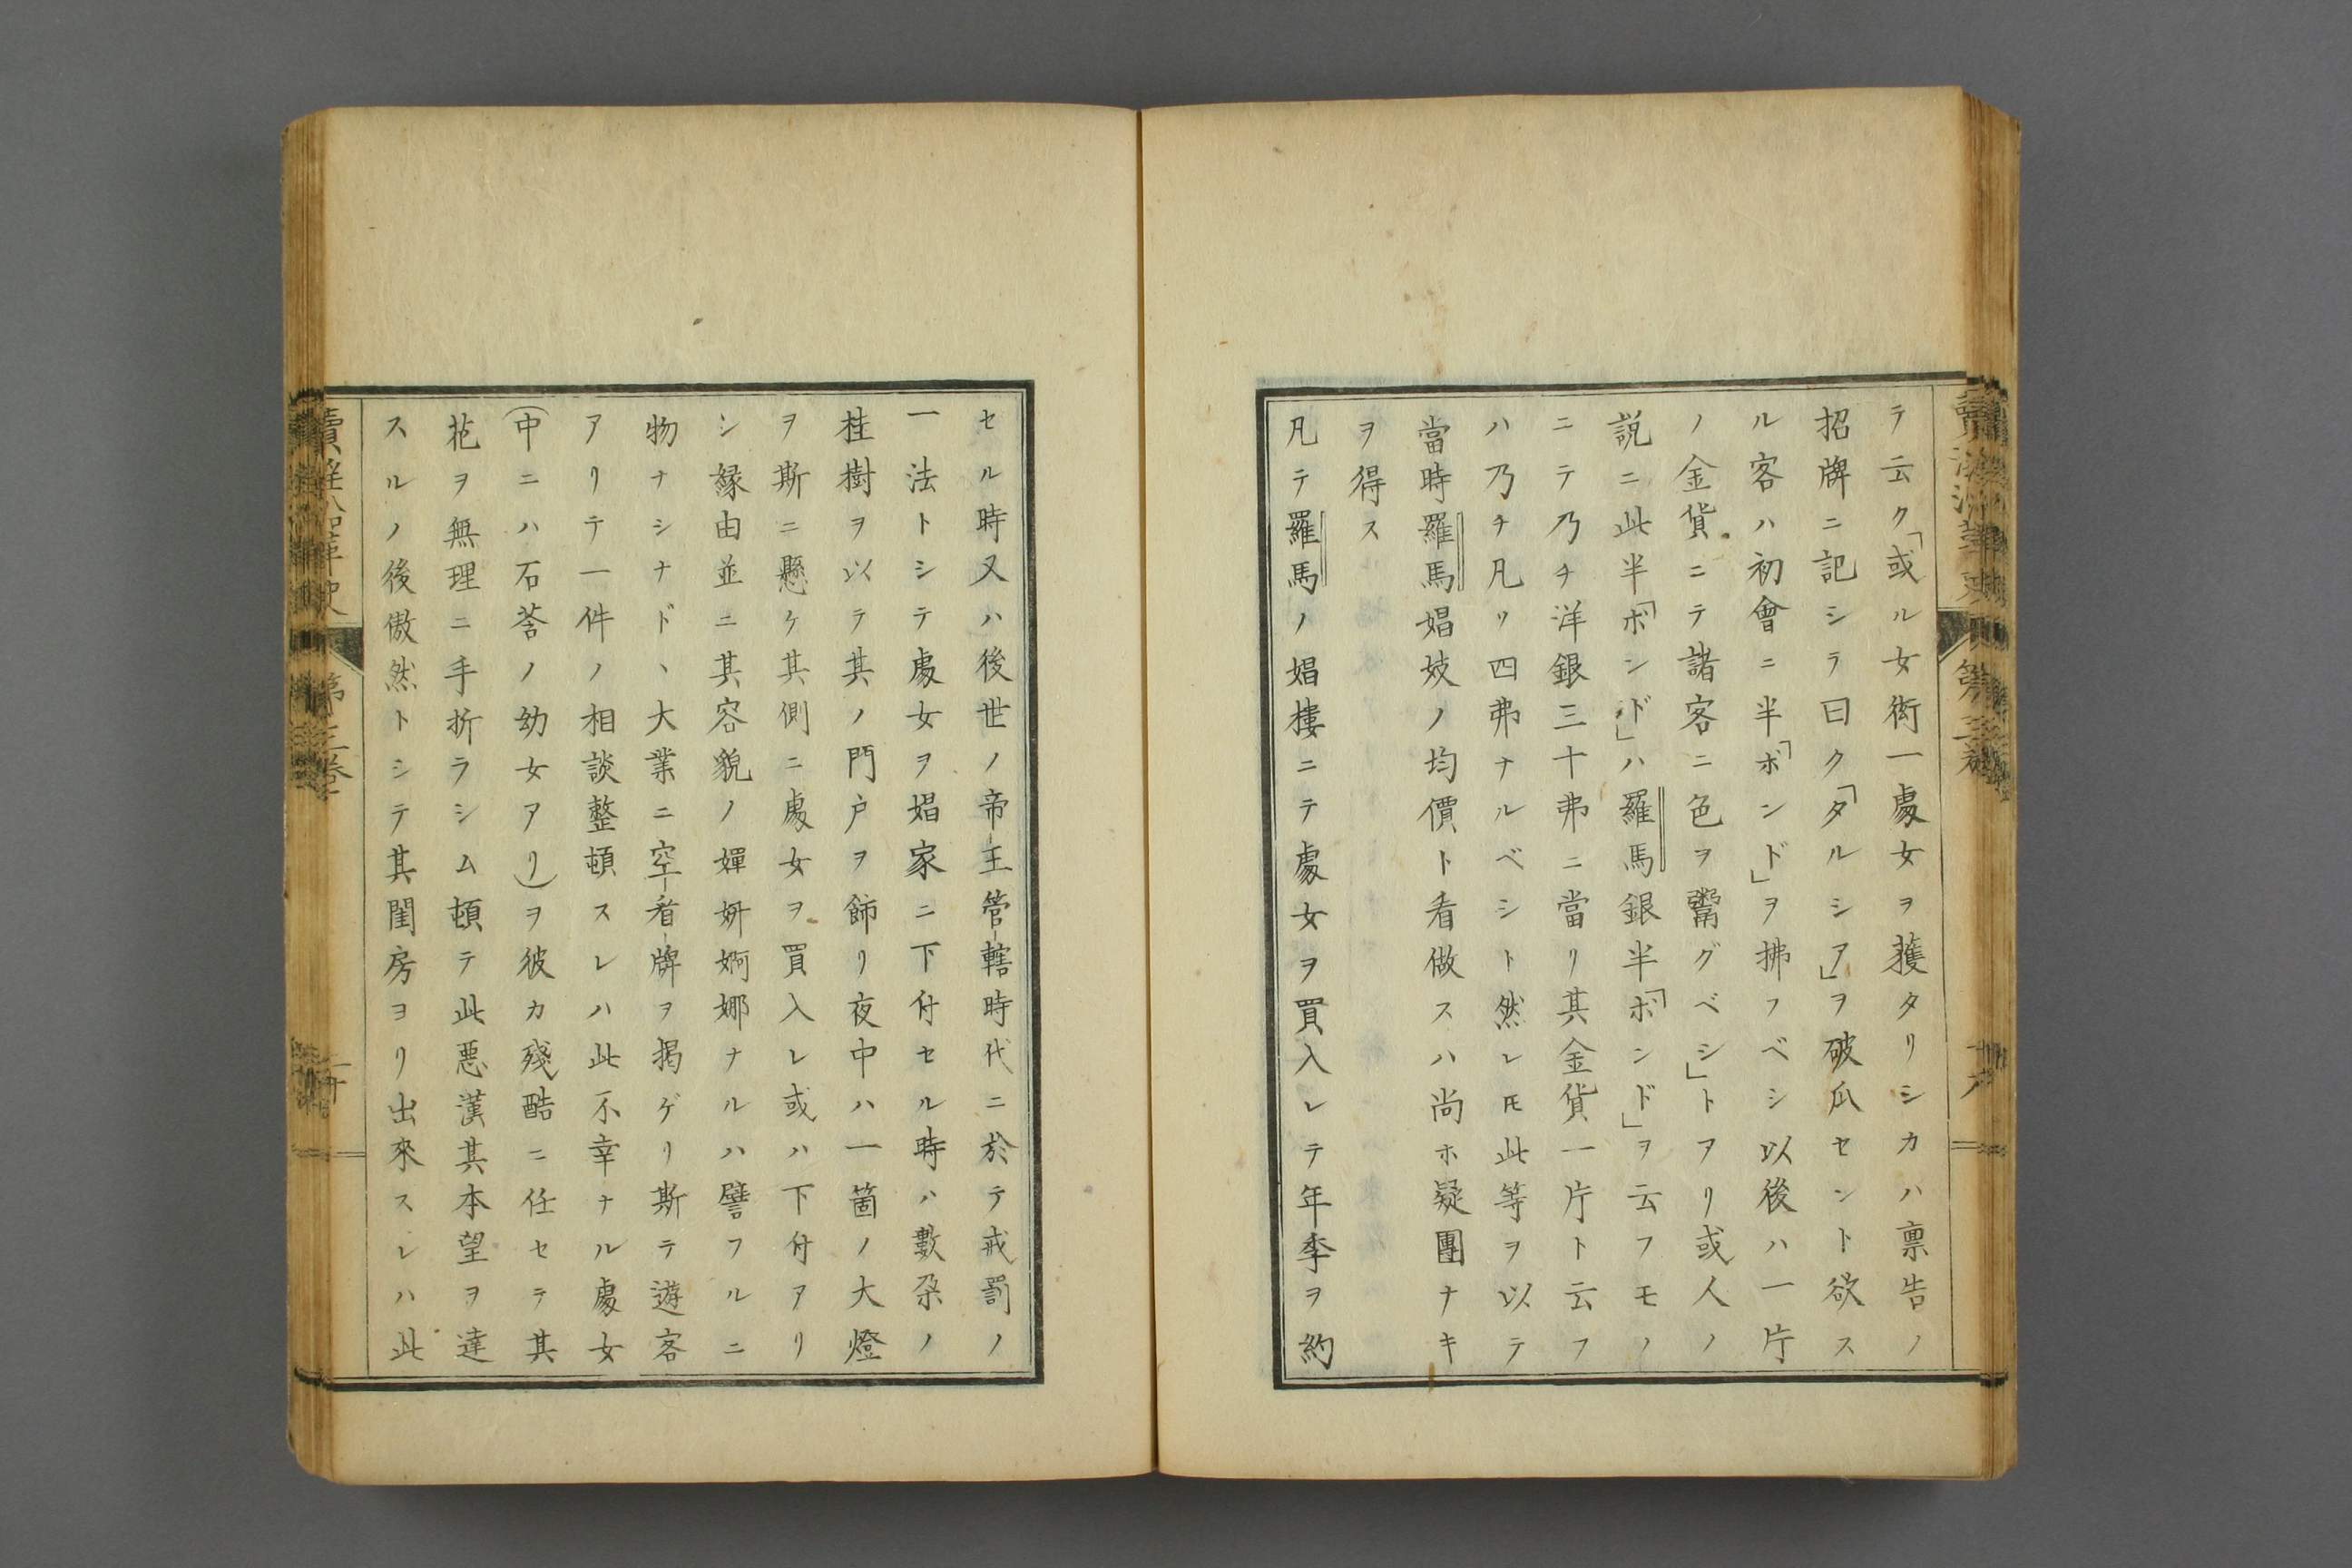 テ云ク「或ル女衒一處女ヲ獲タリシカハ禀告ノ
招牌ニ記シラ曰ク「タルシア」ヲ破瓜セント欲ス
ル客ハ初會ニ半「ボンド」ヲ拂フベシ以後ハ一片
ノ金貨ニテ諸客ニ色ヲ鬻グベシ」トアリ或人ノ
説ニ此半「ボンド」ハ羅馬銀半「ボンド」ヲ云フモノ
ニテ乃チ洋銀三十弗ニ當リ其金貨一片ト云フ
ハ乃チ凡リ四弗ナルベシト然レ𪜈此等ヲ以テ
當時羅馬娼妓ノ均價ト看做スハ尚ホ疑團ナキ
ヲ得ス
凡テ羅馬ノ娼樓ニテ處女ヲ買入レテ年季ヲ約
セル時又ハ後世ノ帝王管轄時代ニ於テ戒罰ノ
一法トシテ處女ヲ娼家ニ下付セル時ハ數朶ノ
桂樹ヲ以テ其ノ門戸ヲ飾リ夜中ハ一箇ノ大燈
ヲ斯ニ懸ケ其側ニ處女ヲ買入レ或ハ下付アリ
シ縁由並ニ其容貌ノ嬋妍婀娜ナルハ譬フルニ
物ナシナド、大業ニ空看牌ヲ掲ゲリ斯テ遊客
アリテ一件ノ相談整頓スレハ此不幸ナル處女
(中ニハ石荅ノ幼女アリ)ヲ彼カ殘酷ニ任セテ其
花ヲ無理ニ手折ラシム頓テ此惡漢其本望ヲ達
スルノ後傲然トシテ其閨房ヨリ出來スレハ此
第三卷